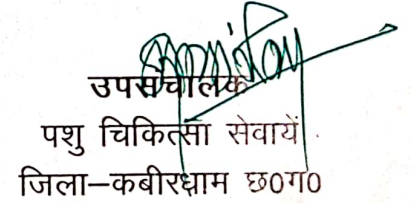 उपसंचालक
पशु चिकित्सा सेवायें
जिला–कबीरधाम छ0ग0